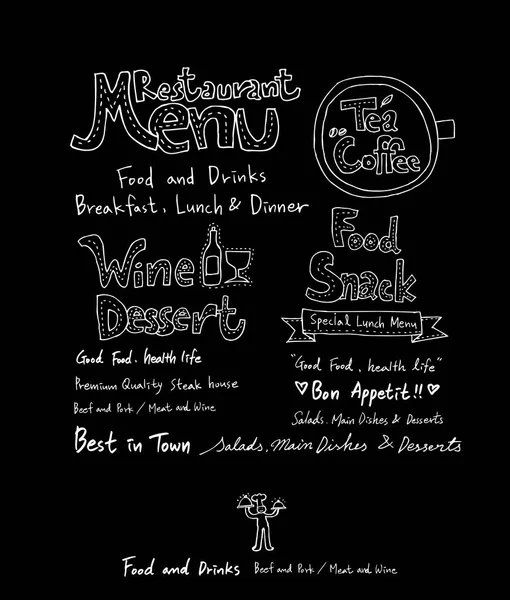 Restaurant
Menu
Food and Drinks
Breakfast, Lunch & Dinner
Tea
Coffee
Wine
Dessert
Food
Snack
Special Lunch Menu
Good Food, health life
Premium Quality Steak house
Beef and Pork / Meat and Wine
"Good Food, health life"
Bon Appetit!!
Salads, Main Dishes & Desserts
Best in Town Salads, Main Dishes & Desserts
Food and Drinks Beef and Pork / Meat and Wine